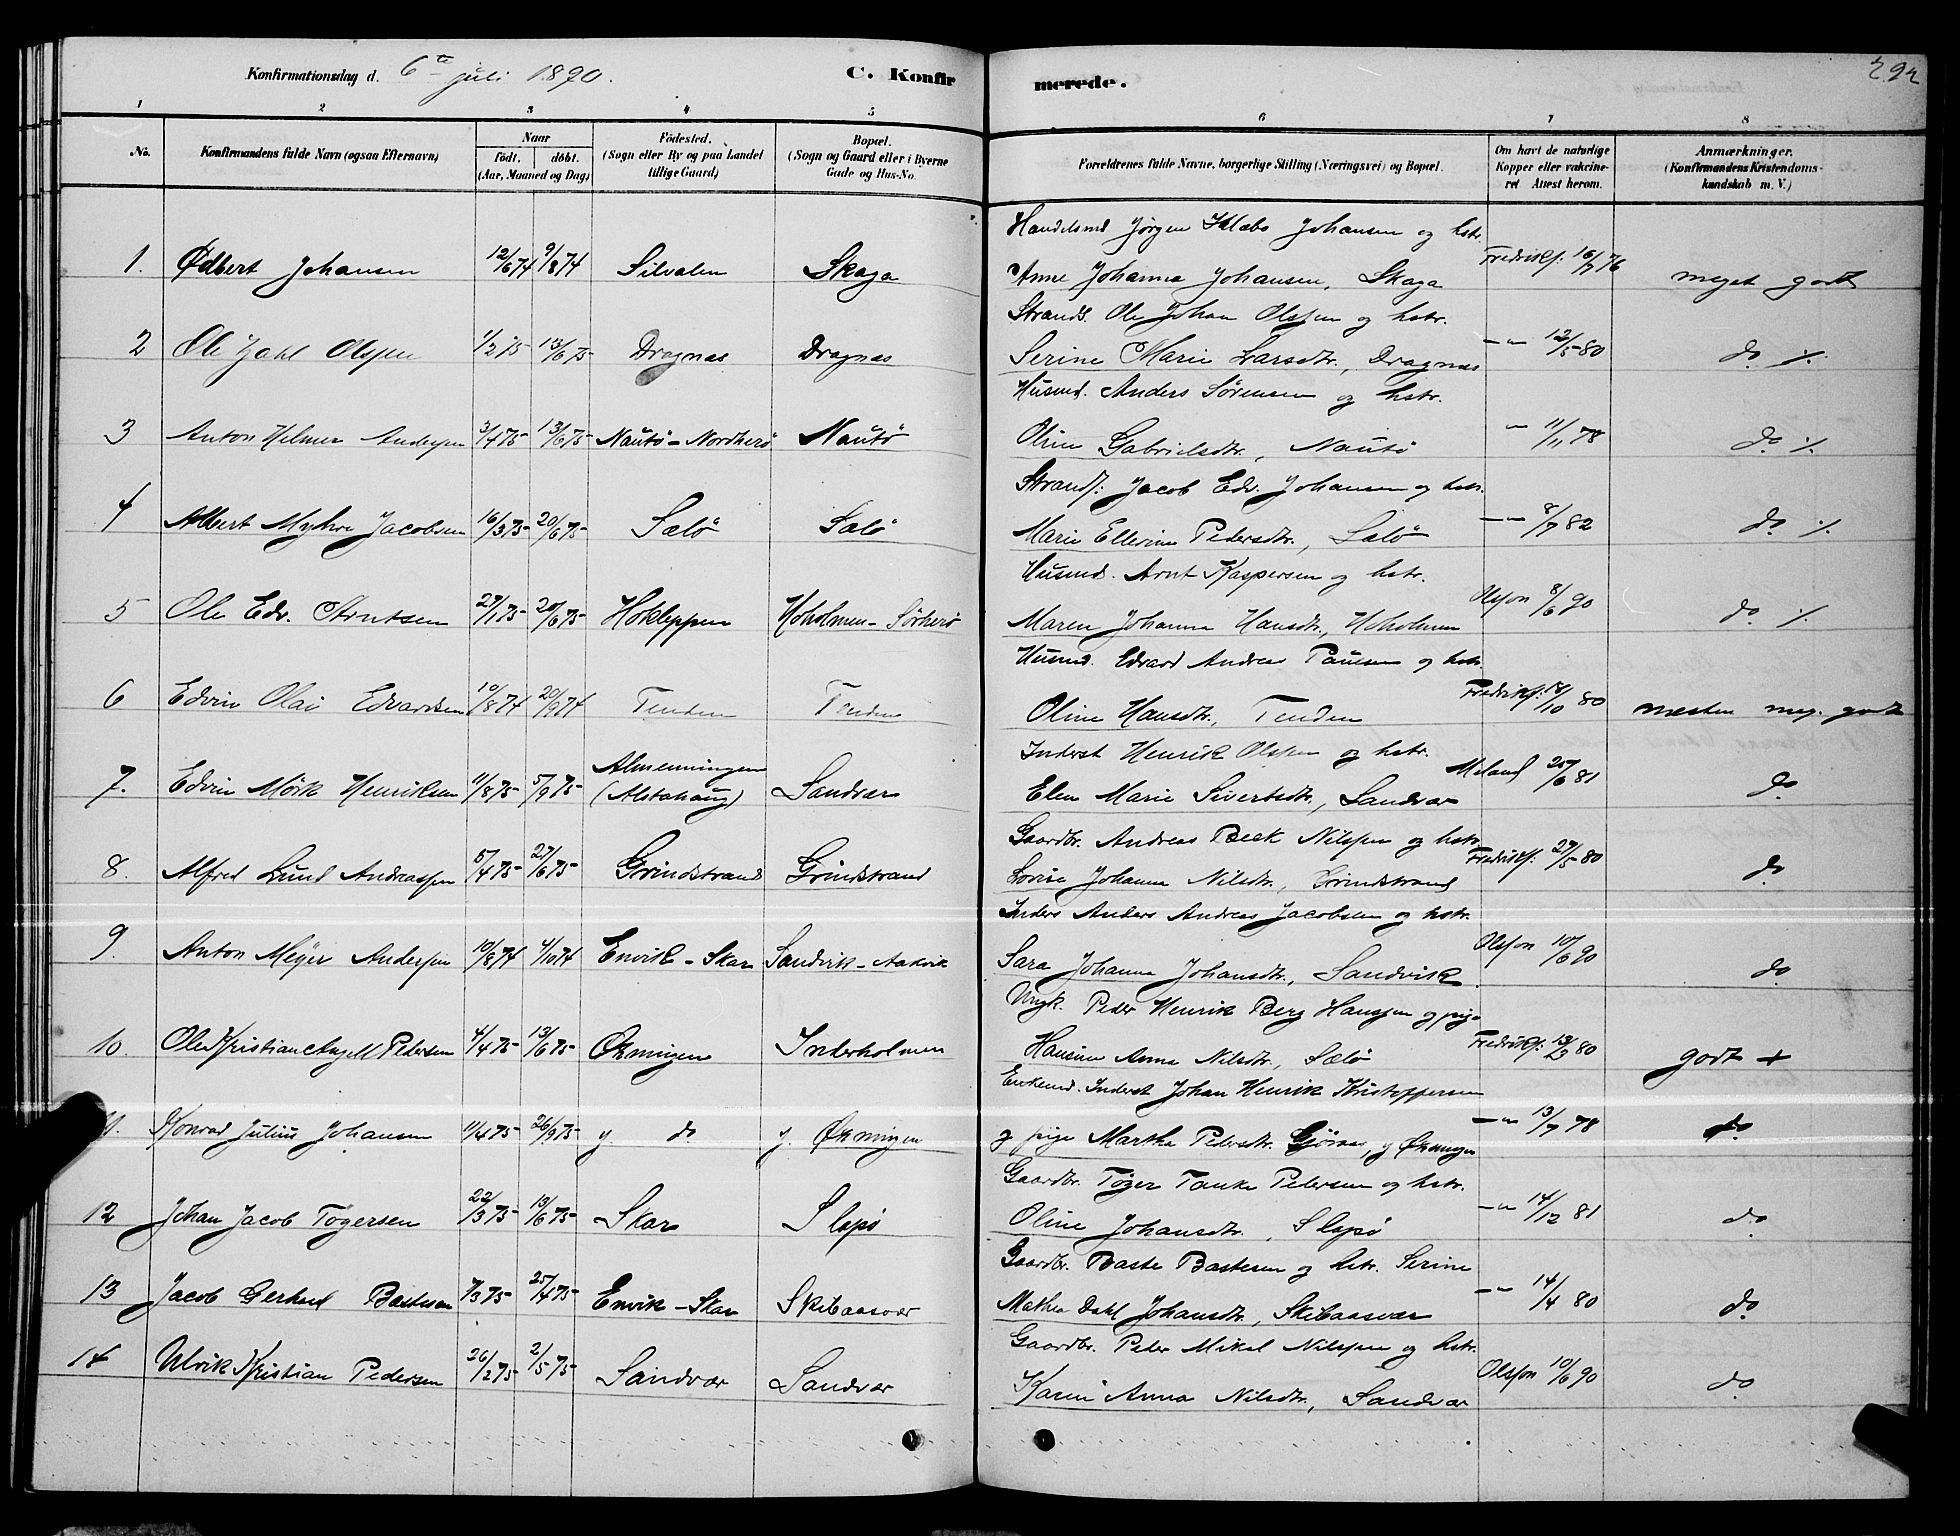 Konfirmationsdag d. 6te juli 1890. C. Konfirmerede. 292
1 2 3 4 5 6 7 8
No. Konfirmandens fulde Navn (ogsaa Efternavn) Naar født. døbt. (Aar, Maaned og Dag) Födested. (Sogn eller By og paa Landet tillige Gaard) Bopæl. (Sogn og Gaard eller i Byerne Gade og Hus-No. Forældrenes fulde Navne, borgerlige Stilling (Næringsvei) og Bopæl. Om havt de naturlige Kopper eller vakcineret Attest herom. Anmærkninger. (Konfirmandens Kristendomskundskab m. V.)
Handelsmd Jørgen Klæbo Johansen og hstr.
1. Ødbert Johansen 12/6 74 9/8 74 Silvalen Skaga Anne Johanna Johansen, Skaga Fredriks: 16/7 76 meget godt
Strands. Ole Johan Olssen og hstr.
2 Ole Dahl Olssen 1/2 75 13/6 75 Dragnas Dragnas Serine Marie Larsdtr., Dragnas —"— 12/5 80 do %
Husmd. Anders Sörensen og hstr.
3 Anton Helmer Anderssen 3/4 75 13/6 75 Nautö - Nordherö Nautö Oline Gabrielsdtr., Nautö " 11/11 78 do %
Strands: Jacob Edv. Johansen og hstr.
4 Albert Myhre Jacobsen 16/3 75 20/6 75 Salö Salö Marie Ellerine Pedersdtr., Salö —"— 8/7 82 do %
Husmd. Arnt Kaspersen og hstr.
5 Ole Edv. Arntsen 27/1 75 20/6 75 Hokleppen Hoholmen - Sörherö Maren Johanna Hansdtr., Hoholmen Olsson 8/6 90 do %
Husmd. Edvard Andreas Paulsen og hstr.
6 Edvin Olai Edvardsen 10/8 74 20/9 74 Tenden Tenden Oline Hansdtr., Tenden Fredriks: 16/10 80 næsten meg. godt
Inderst Henrik Olssen og hstr.
7. Edvin Mörk Henriksen 11/8 75 5/9 75 Almenningen (Alstahaug) Sandvær Elen Marie Sivertsdtr., Sandvær 25/6 81 do
Gaardbr. Andreas Beck Nilssen og hstr.
8. Alfred Lund Andreassen 5/4 75 27/6 75 Grindstrand Grindstrand Lovise Johanna Nilsdtr., Grindstrand Fredriks: 27/5 80 do
Inders Anders Andreas Jacobsen og hstr.
9. Anton Meyer Anderssen 10/8 74 4/10 74 Envik - Skar Sandvik - Aakvik Sara Johanna Johansdtr., Sandvik. Olsson 10/6 90 do
Ungk. Peder Henrik Berg Hanssen og pige
10. Ole Kristian Angell Petersen 4/4 75 13/6 75 Økningen Inderholmen Hansine Anna Nilsdtr., Salö Fredriks: 13/2 80 godt +
Enkemd. Inderst Johan Henrik Kristoffersen
11. Konrad Julius Johansen 11/4 75 26/9 75 y do y. Økningen og pige Martha Petersdtr. Gjösnes, y Økningen —"— 13/7 78 do
Gaardbr. Töger Tanke Petersen og hstr.
12 Johan Jacob Tögersen 22/3 75 13/6 75 Skar Slapö Oline Johansdtr., Slapö —"— 14/12 81 do
Gaardbr. Baste Bastesen og hstr. Serine
13 Jacob Gerhard Bastesen 7/3 75 25/4 75 Envik - Skar Skibaasvær Mathea Dahl Johansdtr., Skibaasvær —"— 14/4 80 do
Gaardbr. Peder Mikal Nilssen og hstr.
14 Ulrik Kristian Pedersen 26/2 75 2/5 75 Sandvær Sandvær Karen Anna Nilsdtr., Sandvær Olsson 10/6 90 do